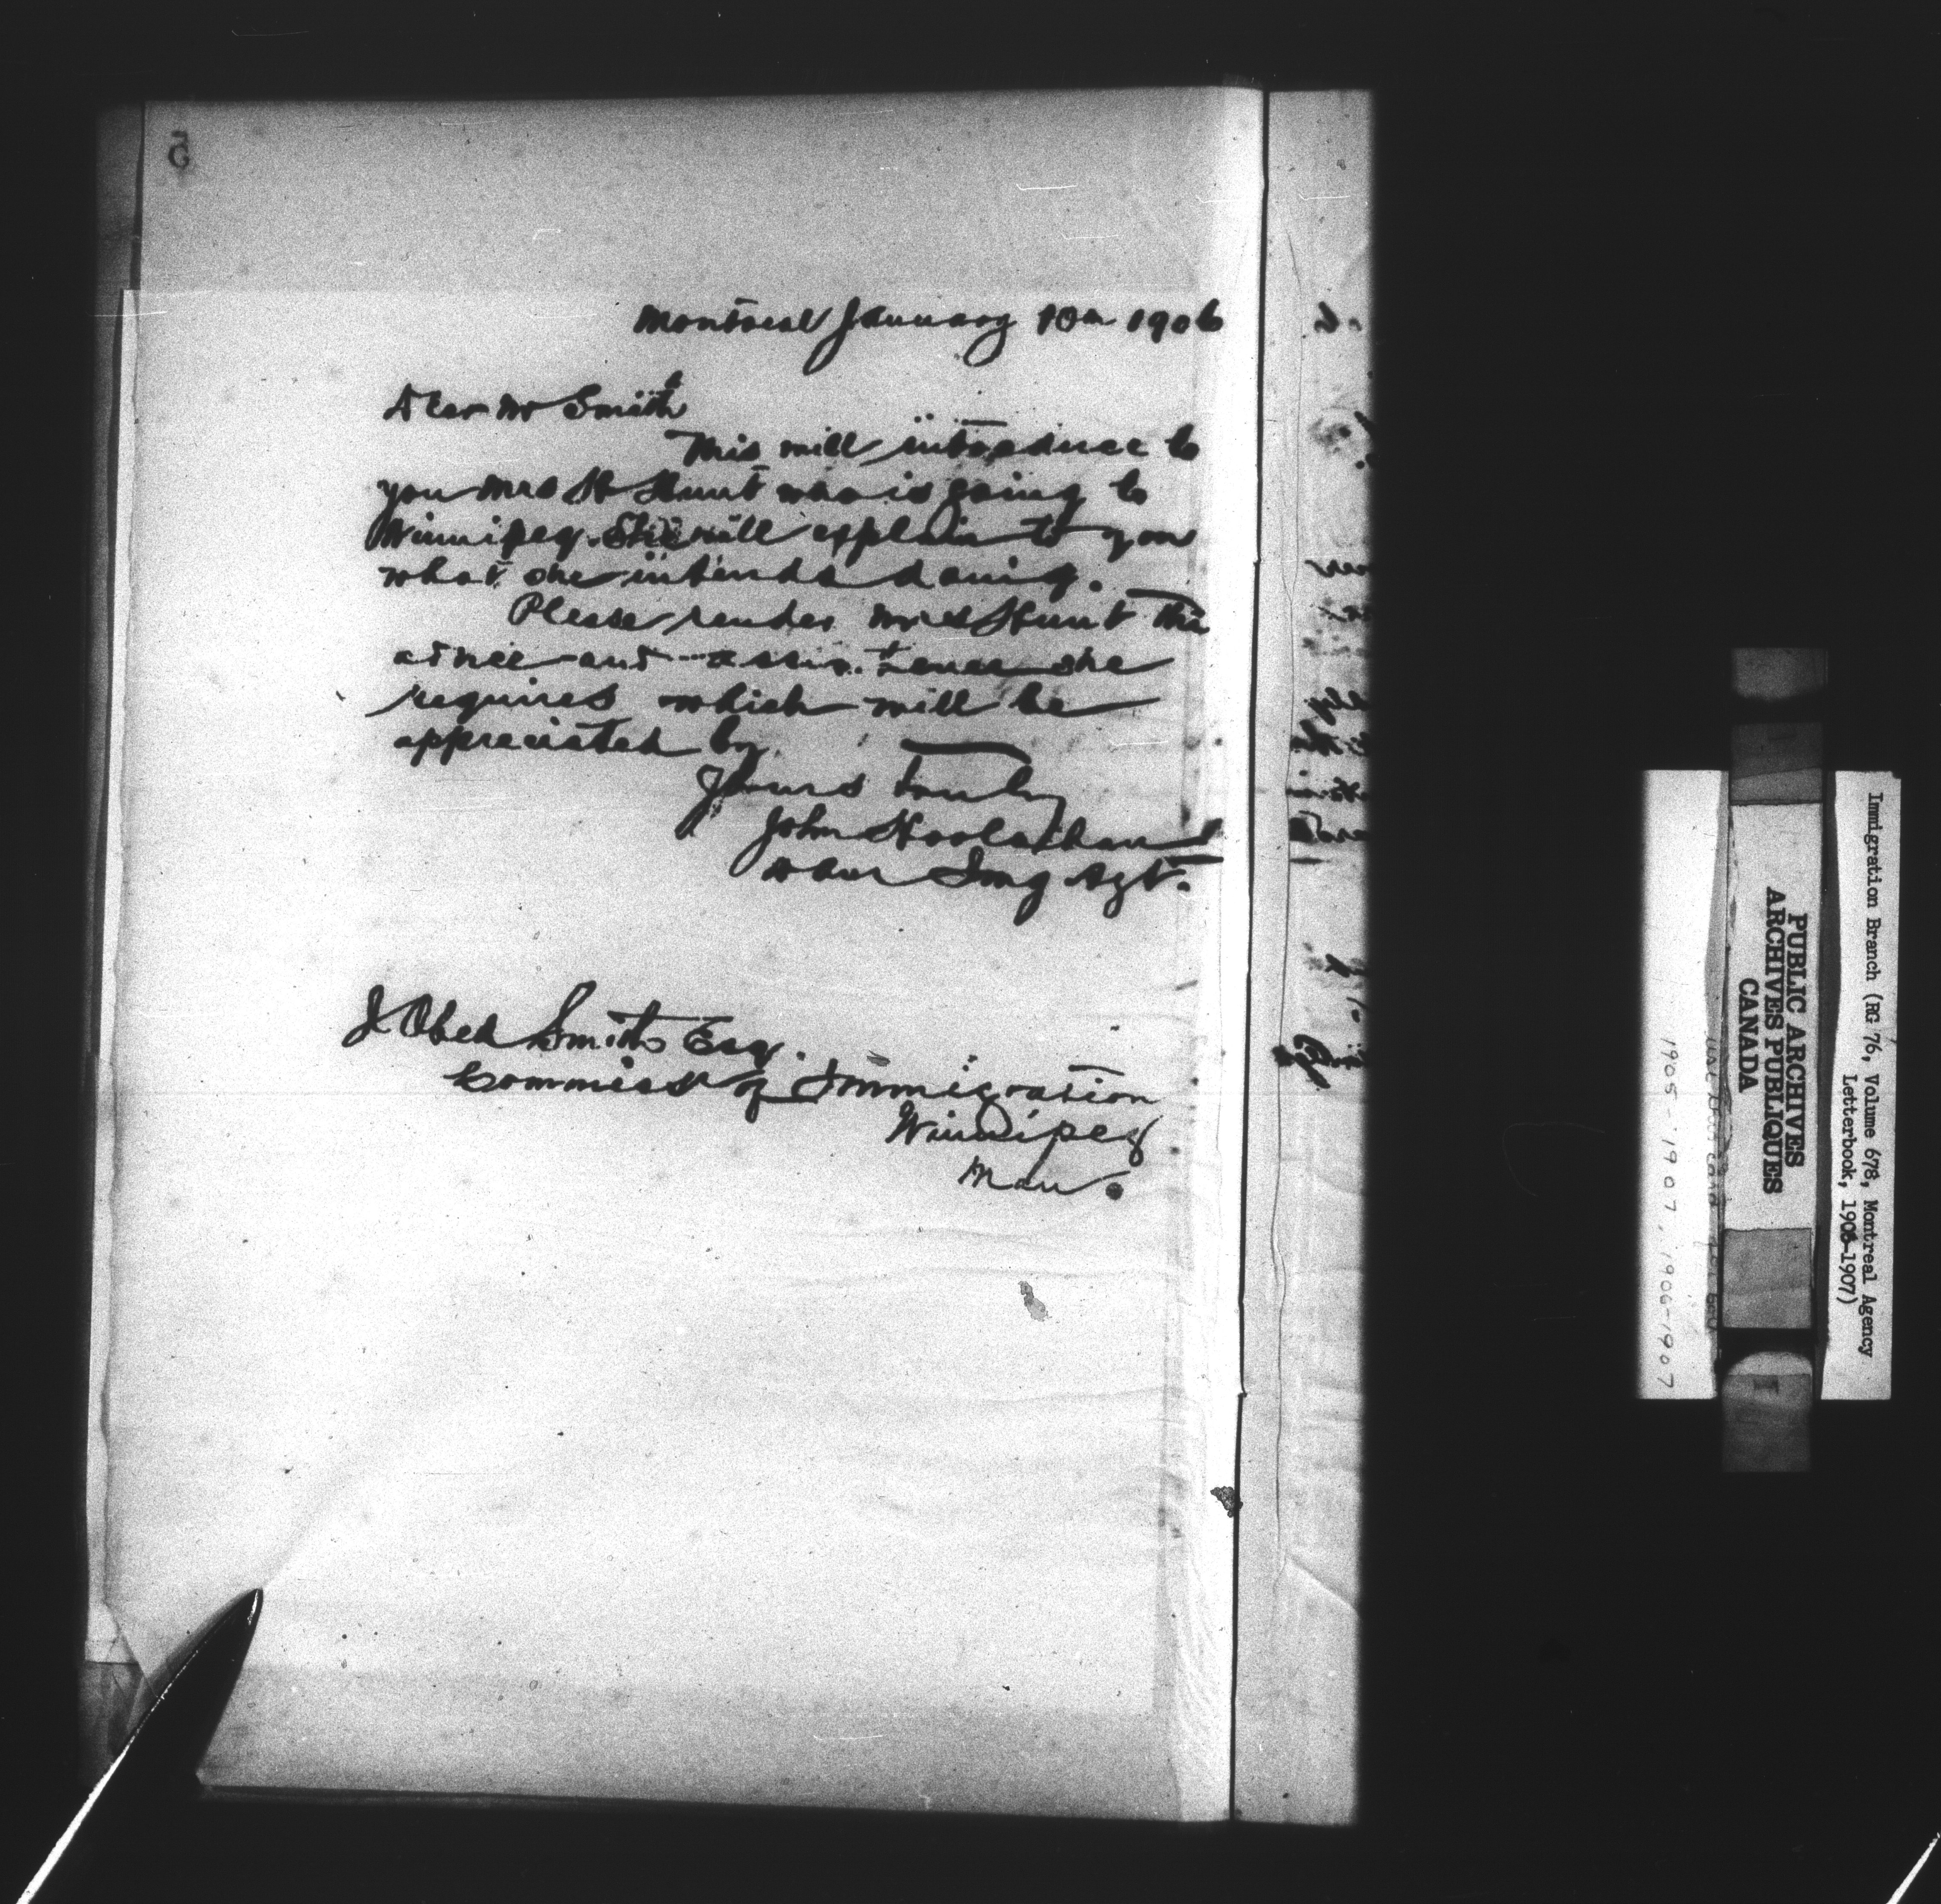 5
Montreal January 10th 1906
Dear Mr Smith
This will introduce to
you Mrs H Hunt who is going to
Winnipeg. She will explain to you
what she intends doing.
Please render Mrs Hunt the
advice and assistance she
requires which will be
appreciated by
Yours Truly
John Hoolahan
Dom Img Agt.
J Obed Smith Esq.
Commissr of Immigration
Winnipeg
Man.
Immigration Branch (RG 76, Volume 678, Montreal Agency
Letterbook, 1906-1907)
PUBLIC ARCHIVES
ARCHIVES PUBLIQUES
CANADA
1905-1907, 1906-1907